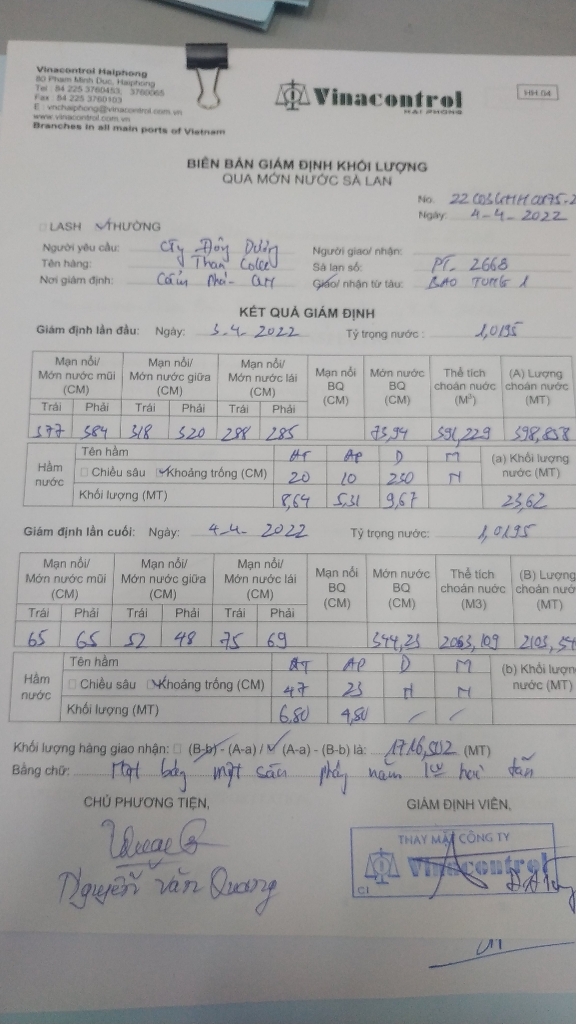 Vinacontrol Haiphong
80 Pham Minh Duc, Haiphong
Tel : 84 225 3760453, 3760065
Fax : 84 225 3760103
E : vnchaiphong@vinacontrol.com.vn
www.vinacontrol.com.vn
Branches in all main ports of Vietnam
Vinacontrol
HAI PHONG
HH.04
BIÊN BẢN GIÁM ĐỊNH KHỐI LƯỢNG
QUA MỚN NƯỚC SÀ LAN
No.
Ngày: 4-4-2022
LASH THƯỜNG
Người yêu cầu: Cty Đông Dương
Người giao/ nhận:
Tên hàng: Than
Sà lan số: PT- 2668
Nơi giám định: Cẩm Phả - QN
Giao/ nhận từ tàu: BAO TUNG 1
KẾT QUẢ GIÁM ĐỊNH
Giám định lần đầu: Ngày: 3-4-2022 Tỷ trọng nước : 1,0195
Mạn nổi/ Mớn nước mũi (CM) Mạn nổi/ Mớn nước giữa (CM) Mạn nổi/ Mớn nước lái (CM) Mạn nổi BQ (CM) Mớn nước BQ (CM) Thể tích choán nước (M³) (A) Lượng choán nước (MT)
Trái Phải Trái Phải Trái Phải
377 384 318 320 288 285 73,94 391,229 398,858
Hầm nước
Tên hầm AT AP D M (a) Khối lượng nước (MT)
Chiều sâu Khoảng trống (CM) 20 10 230 N
Khối lượng (MT) 8,64 5,31 9,67 23,62
Giám định lần cuối: Ngày: 4-4-2022 Tỷ trọng nước: 1,0195
Mạn nổi/ Mớn nước mũi (CM) Mạn nổi/ Mớn nước giữa (CM) Mạn nổi/ Mớn nước lái (CM) Mạn nổi BQ (CM) Mớn nước BQ (CM) Thể tích choán nước (M3) (B) Lượng choán nước (MT)
Trái Phải Trái Phải Trái Phải
65 65 52 48 75 69 344,23 2063,109
Hầm nước
Tên hầm AT AP D M (b) Khối lượng nước (MT)
Chiều sâu Khoảng trống (CM) 47 23 N N
Khối lượng (MT) 6,80 4,80
Khối lượng hàng giao nhận: (B-b) - (A-a) / (A-a) - (B-b) là: 1716,502 (MT)
Bằng chữ: Một bảy một sáu phẩy năm hai tấn
CHỦ PHƯƠNG TIỆN,
GIÁM ĐỊNH VIÊN,
THAY MẶT CÔNG TY
Vinacontrol
CI
Nguyễn Văn Quang